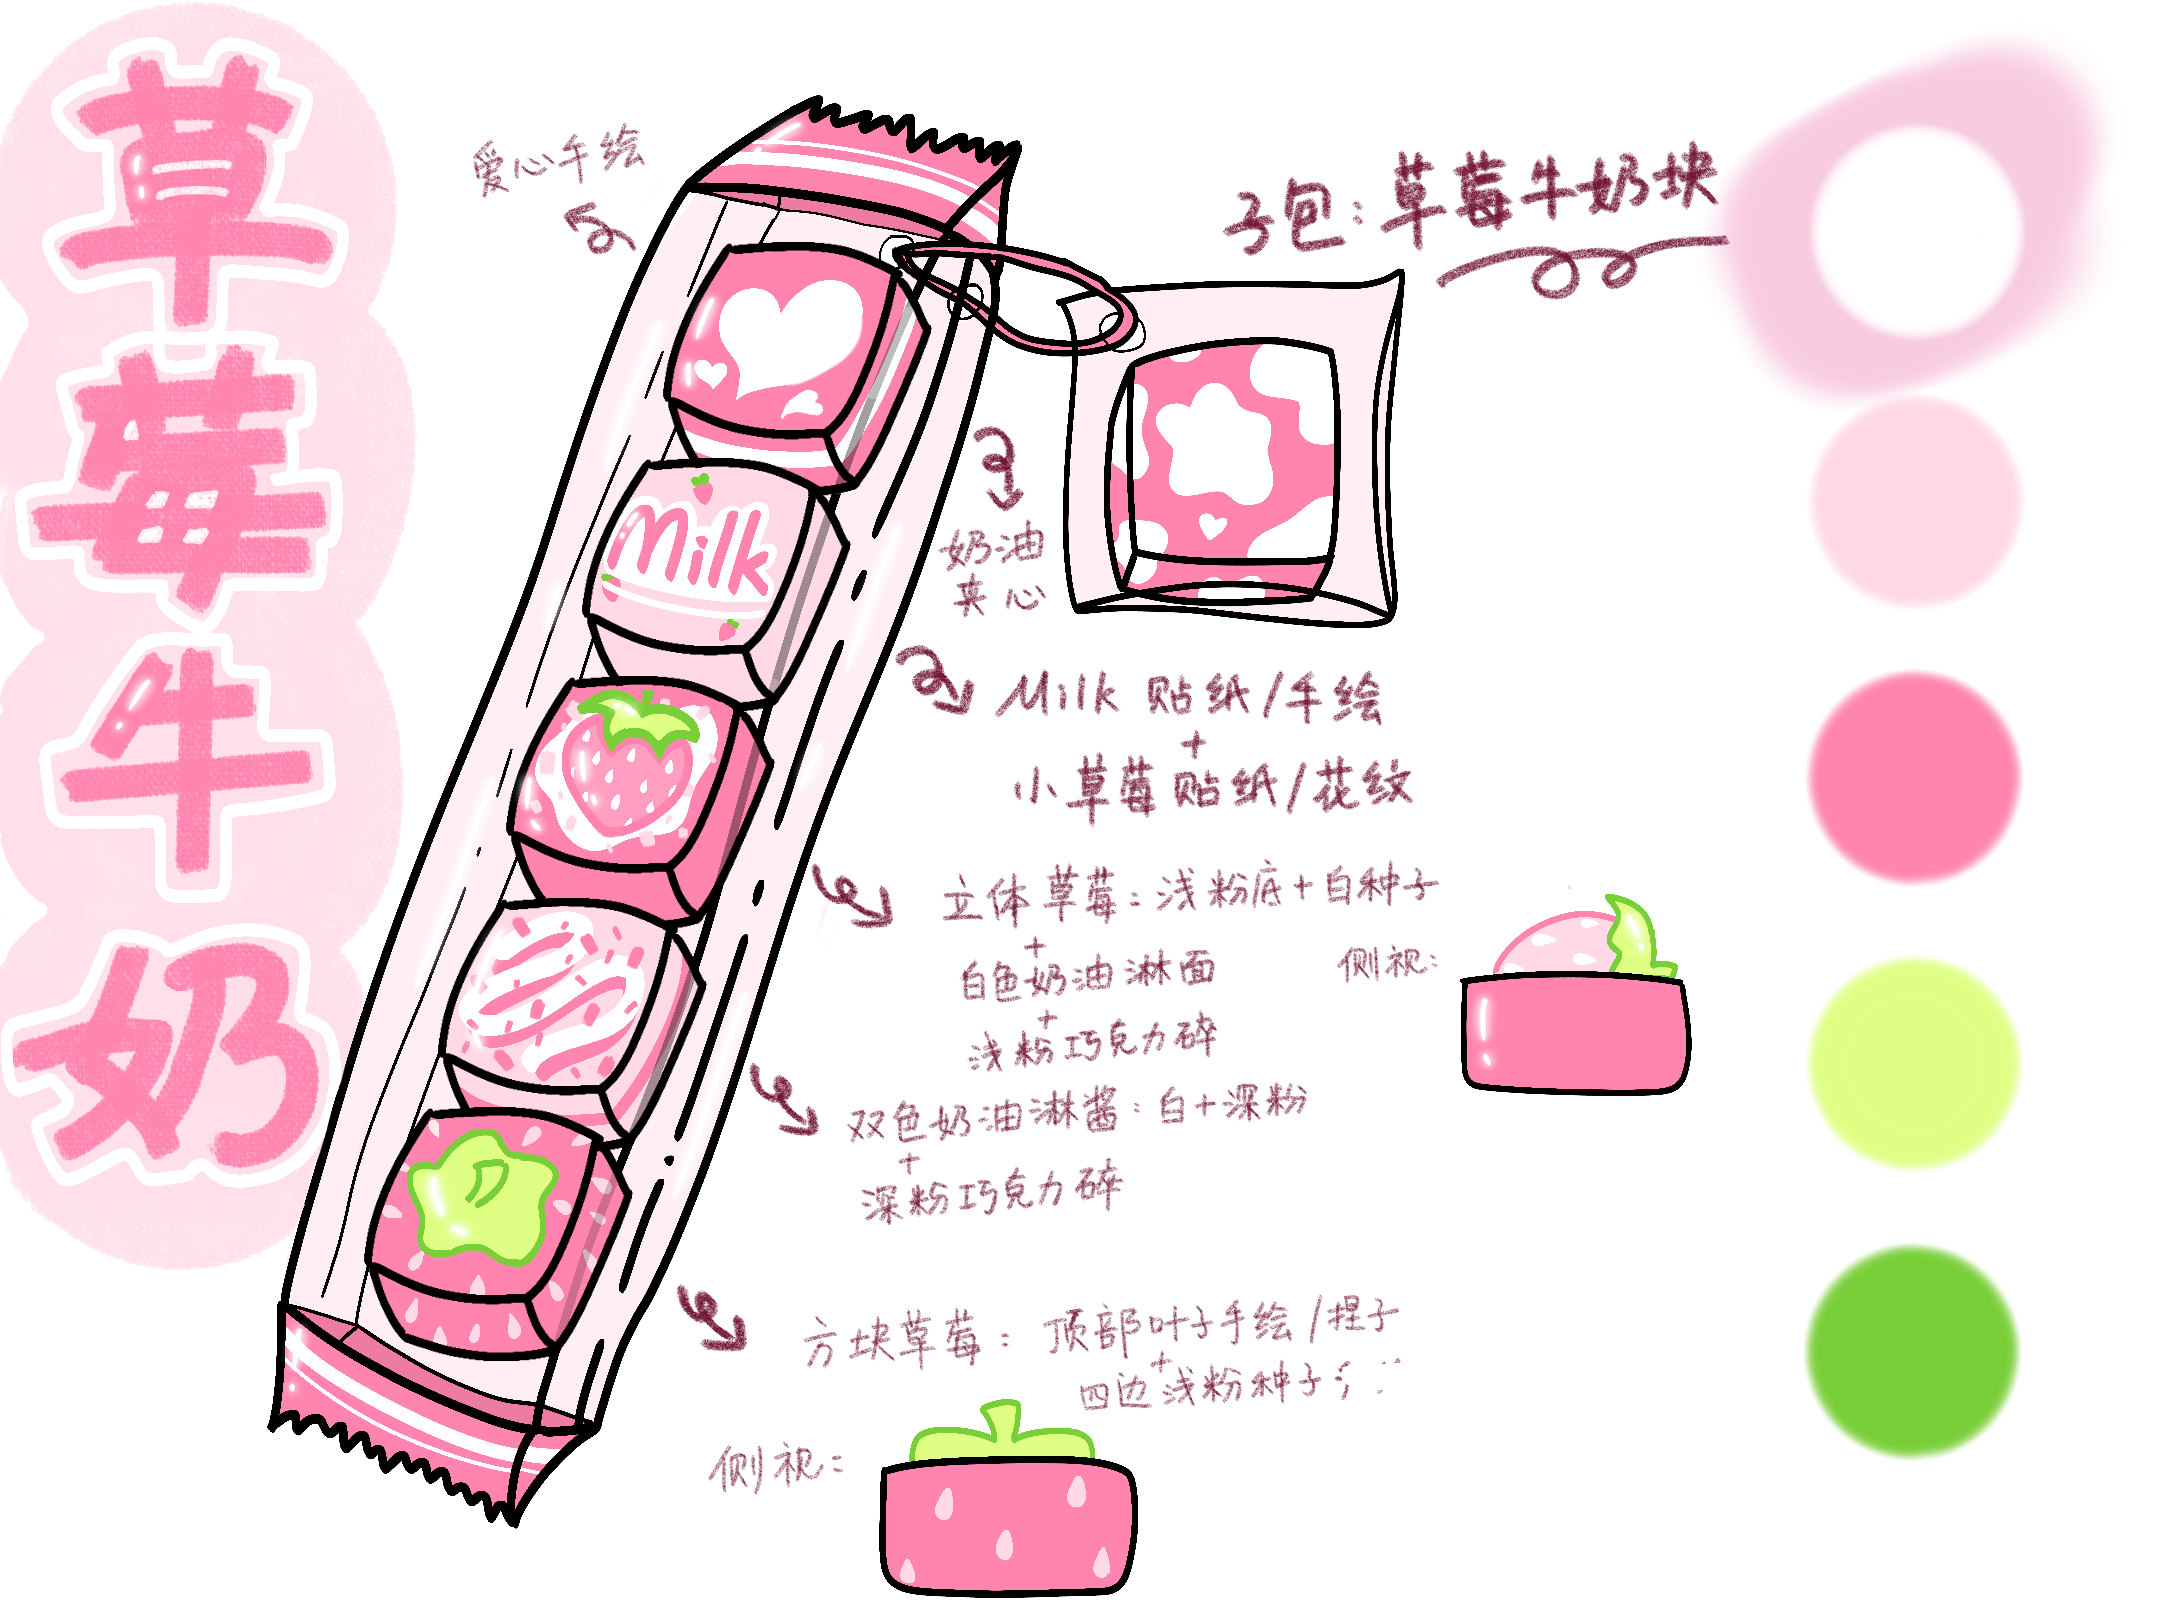 草莓牛奶
爱心手绘
子包：草莓牛奶块
Milk
奶油
夹心
Milk 贴纸/手绘
+
小草莓贴纸/花纹
立体草莓：浅粉底+白种子
+
白色奶油淋面
+
浅粉巧克力碎
侧视：
双色奶油淋酱：白+深粉
+
深粉巧克力碎
方块草莓：顶部叶子手绘/捏子
+
四边浅粉种子
侧视：